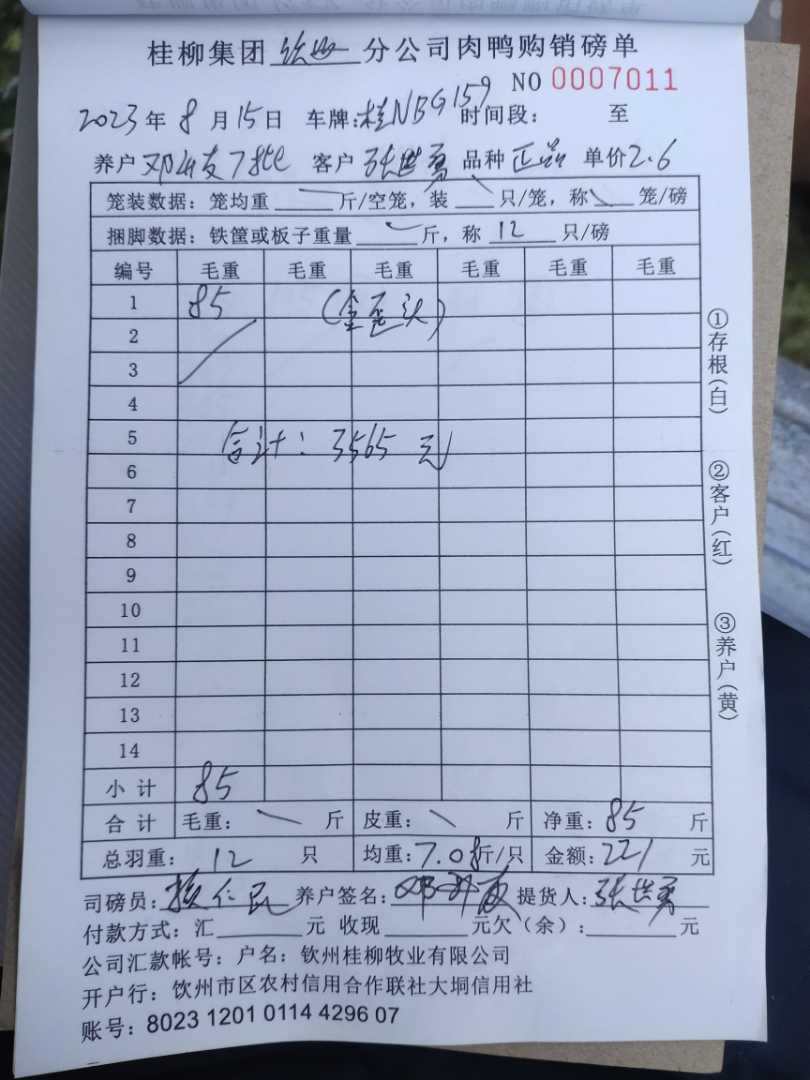 桂柳集团 钦州 分公司肉鸭购销磅单
NO 0007011
2023年 8月15日 车牌:桂NBG159 时间段: 至
养户 邓 客户 张世勇 品种 正品 单价2.6
笼装数据:笼均重 斤/空笼,装 只/笼,称 笼/磅
捆脚数据:铁筐或板子重量 斤,称 12 只/磅
编号 毛重 毛重 毛重 毛重 毛重 毛重
1 85 (全歪头)
2
3
4
5 合计:3565元
6
7
8
9
10
11
12
13
14
小计 85
合计 毛重: 斤 皮重: 斤 净重:85 斤
总羽重: 12 只 均重:7.08斤/只 金额:221 元
司磅员: 养户签名:邓 提货人:张世勇
付款方式:汇 元 收现 元欠(余): 元
公司汇款帐号:户名:钦州桂柳牧业有限公司
开户行:钦州市区农村信用合作联社大垌信用社
账号:8023 1201 0114 4296 07
①存根(白)
②客户(红)
③养户(黄)